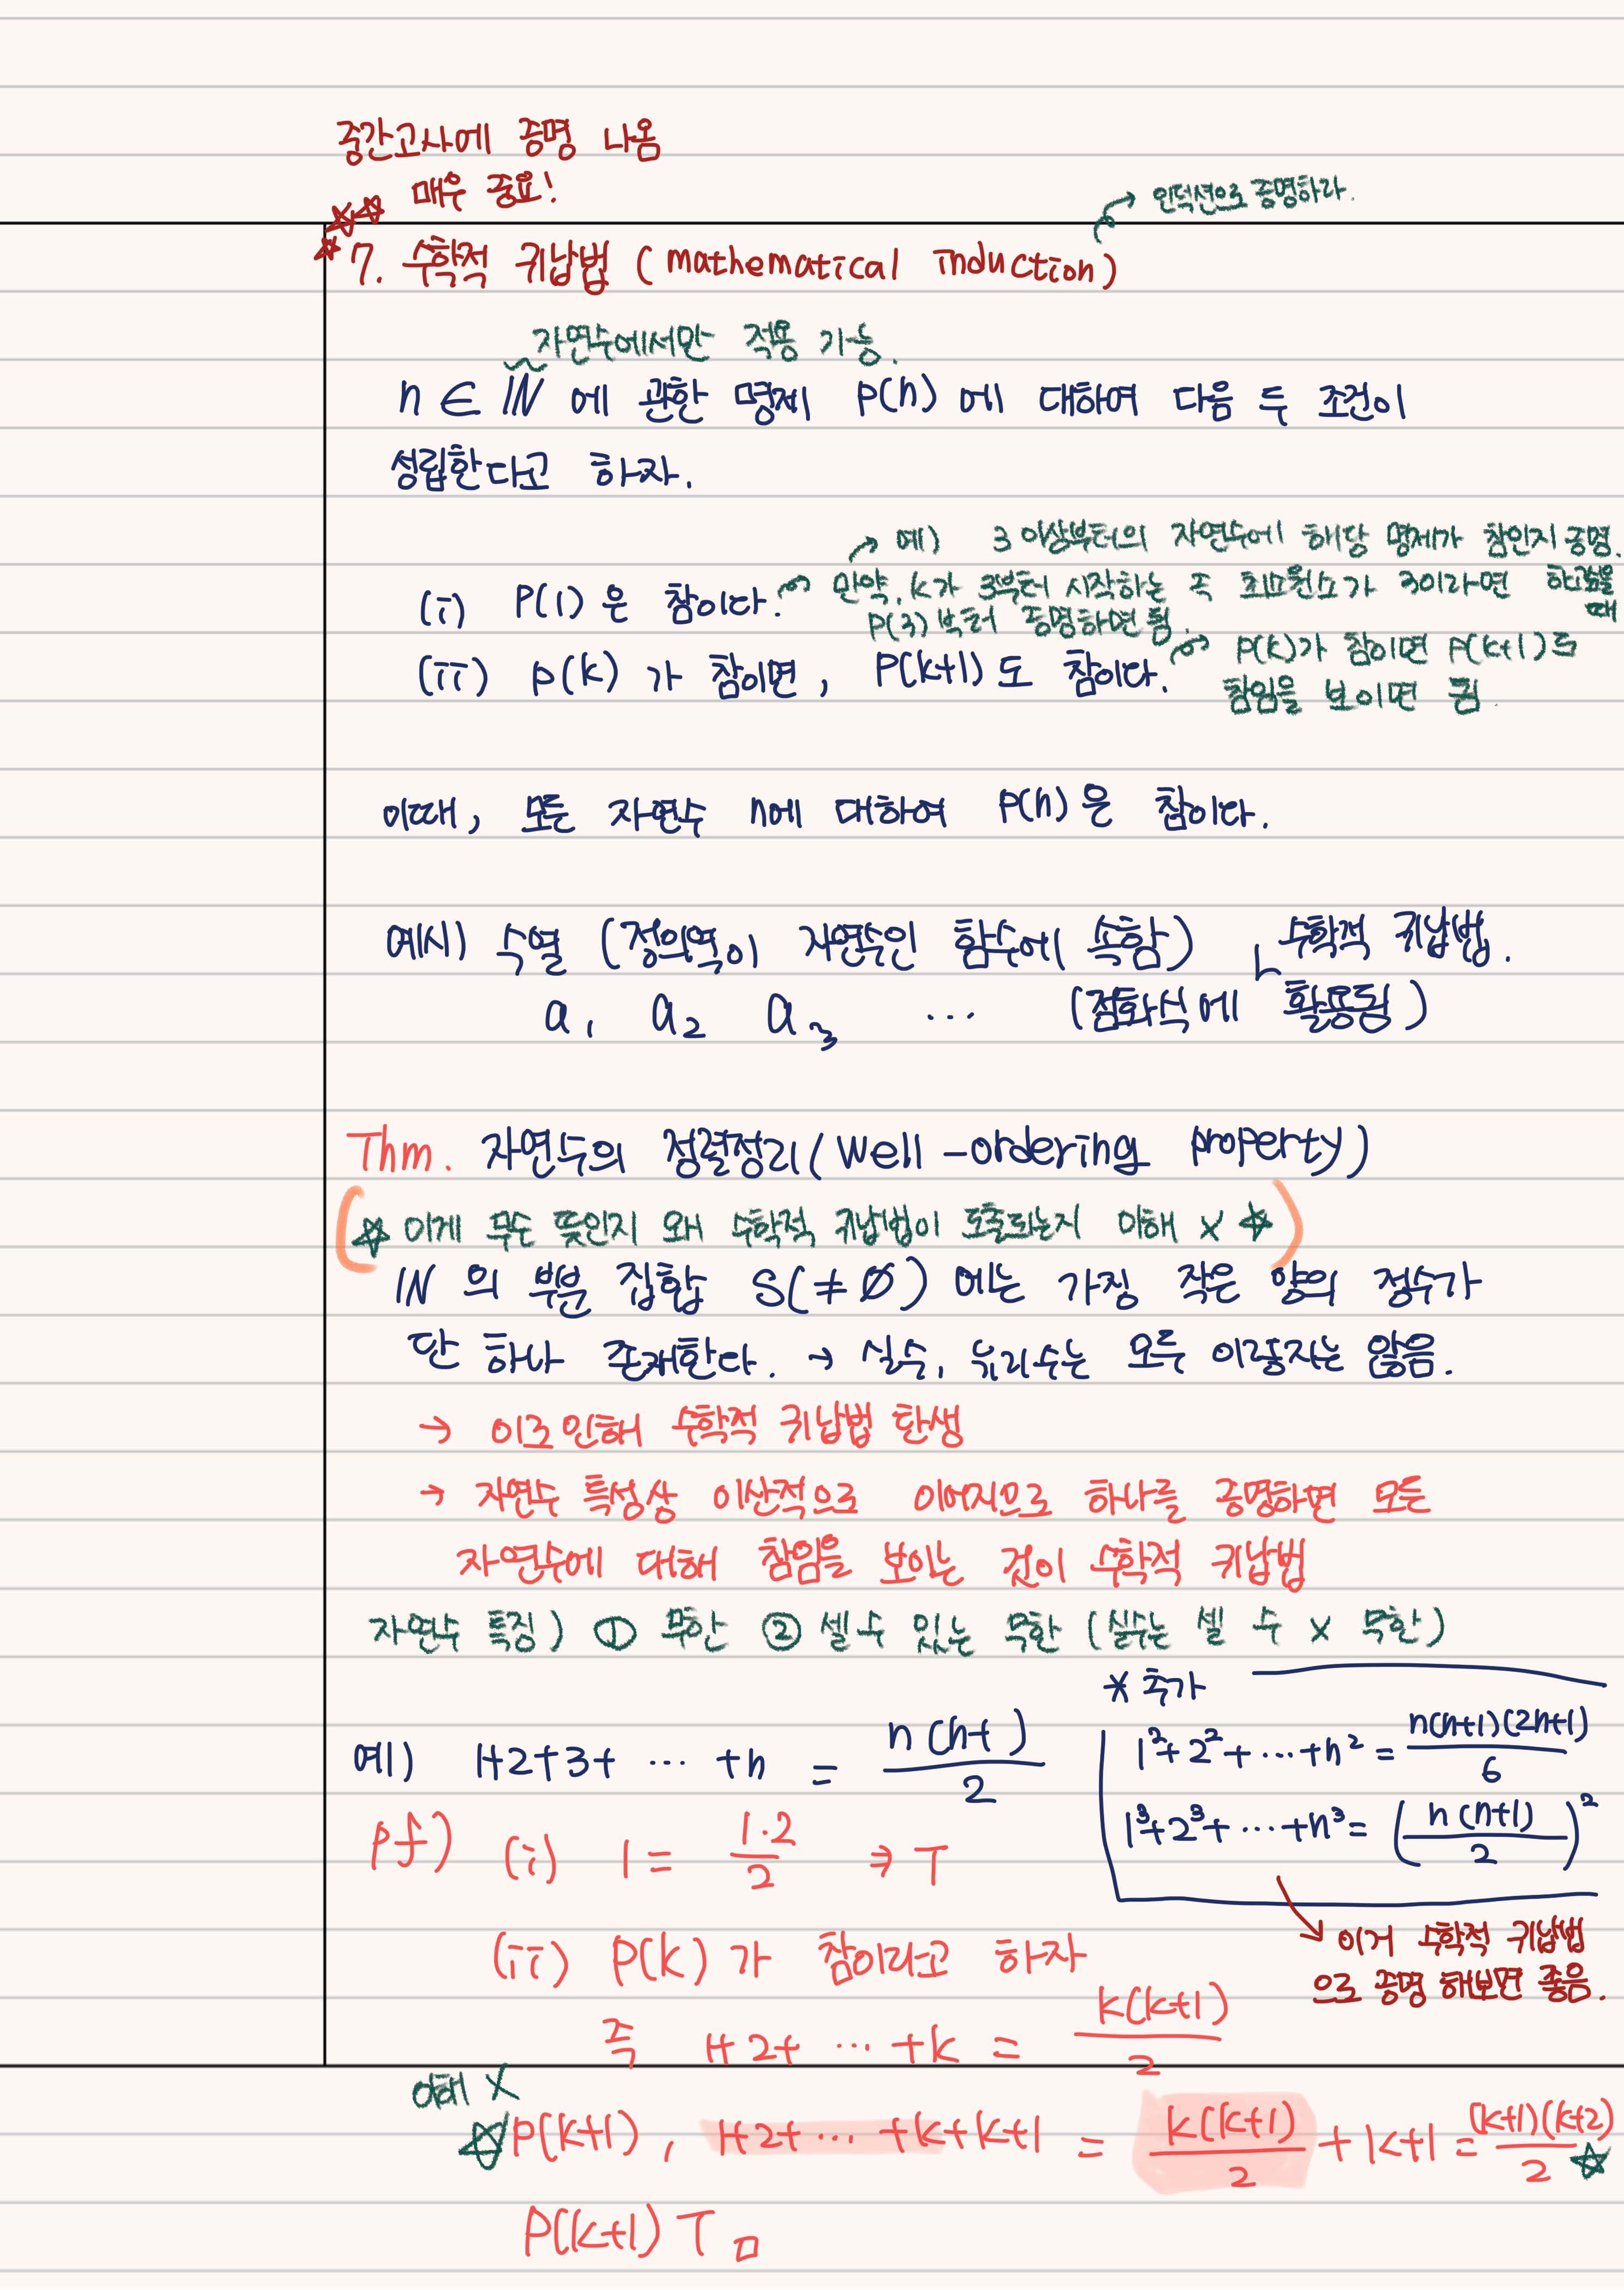 중간고사에 증명 나옴
매우 중요!
인덕션으로 증명하라.
7. 수학적 귀납법 (mathematical induction)
자연수에서만 적용 가능.
n ∈ ℕ 에 관한 명제 P(n) 에 대하여 다음 두 조건이
성립한다고 하자.
예) 3 이상부터의 자연수에 해당 명제가 참인지 증명.
(i) P(1) 은 참이다. 만약, k가 3부터 시작하는 즉 최소원소가 3이라면 하고싶을 때
P(3) 부터 증명하면 됨.
(ii) P(k) 가 참이면, P(k+1) 도 참이다. P(k)가 참이면 P(k+1)도
참임을 보이면 됨.
이때, 모든 자연수 n에 대하여 P(n)은 참이다.
예시) 수열 (정의역이 자연수인 함수에 속함) 수학적 귀납법.
a₁ a₂ a₃ ⋯ (점화식에 활용됨)
Thm. 자연수의 정렬정리(Well-ordering property)
(☆ 이게 무슨 뜻인지 왜 수학적 귀납법이 도출되는지 이해 x ☆)
ℕ 의 부분 집합 S(≠∅) 에는 가장 작은 양의 정수가
단 하나 존재한다. → 실수, 유리수는 모두 이렇지는 않음.
→ 이로 인해 수학적 귀납법 탄생
→ 자연수 특성상 이산적으로 이어지므로 하나를 증명하면 모든
자연수에 대해 참임을 보이는 것이 수학적 귀납법
자연수 특징) ① 무한 ② 셀 수 있는 무한 (실수는 셀 수 x 무한)
* 추가
예) 1+2+3+ ⋯ +n = n(n+ )/2
1²+2²+⋯+n² = n(n+1)(2n+1)/6
1³+2³+⋯+n³ = (n(n+1)/2)²
pf) (i) 1 = 1·2/2 ⇒ T
이거 수학적 귀납법
으로 증명 해보면 좋음.
(ii) P(k) 가 참이라고 하자
즉 1+2+ ⋯ +k = k(k+1)/2
이해 X
☆ P(k+1), 1+2+ ⋯ +k+k+1 = k(k+1)/2 + k+1 = (k+1)(k+2)/2 ☆
P(k+1) T □